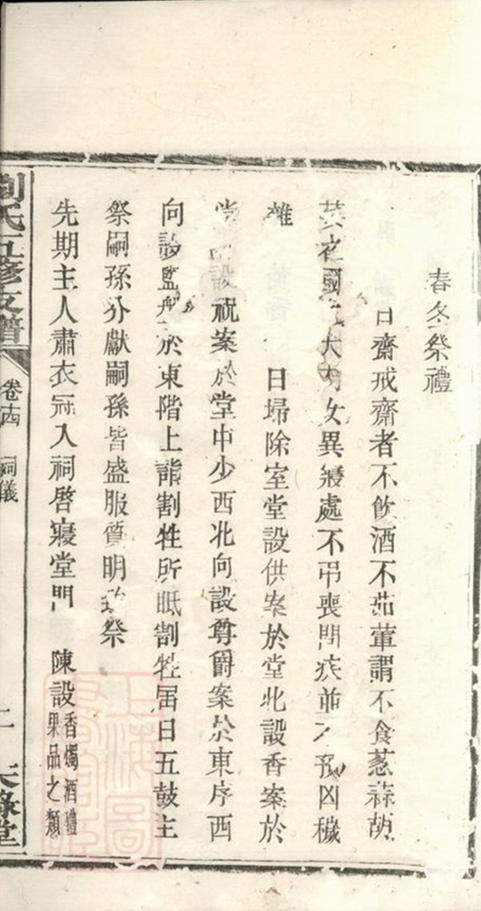 春冬祭禮
日齋戒齋者不飮酒不茹葷謂不食葱蒜胡
荽夜國大男女異寢處不弔喪問疾並不預凶穢
雜 日埽除室堂設供案於堂北設香案於
堂設祝案於堂中少西北向設尊爵案於東序西
向設監於東階上詣割牲所眂割牲届日五鼓主
祭嗣孫分獻嗣孫皆盛服質明致祭
先期主人肅衣冠入祠啓寢堂門 陳設香燭酒醴果品之類
劉氏五修支譜 卷十四 祠儀 二 天祿堂
上海圖書館藏